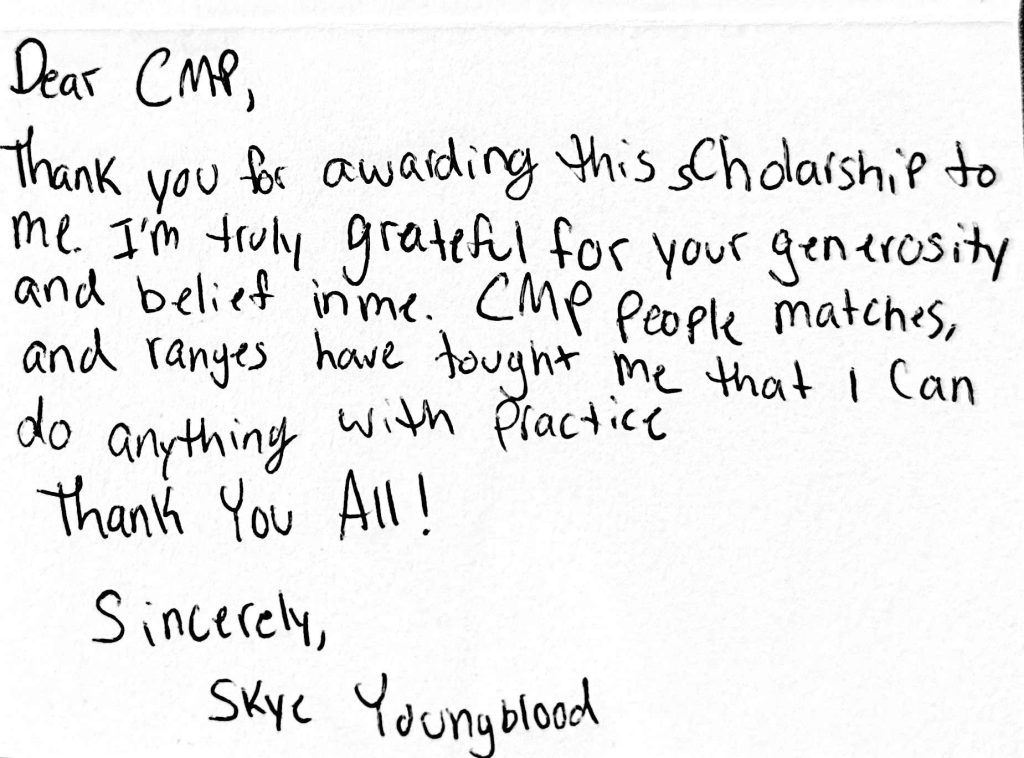 Dear CMP,
Thank you for awarding this scholarship to
me. I'm truly grateful for your generosity
and belief in me. CMP people matches,
and ranges have tought me that I can
do anything with practice
Thank You All!
Sincerely,
Skye Youngblood